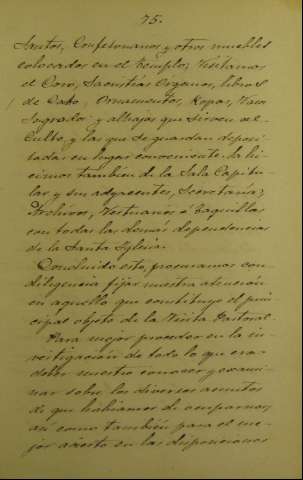 75.
Santos, Confesonarios y otros muebles
colocados en el templo; Visitamos
el Coro, Sacristías Organos, libros
de Canto, Ornamentos, Ropas, Vasos
Sagrados y alhajas que sirven al
Culto, y las que se guardan deposi-
tadas en lugar conveniente. la hi-
cimos tambien de la Sala Capitu-
lar y sus adyacentes, Secretaría,
Archivos, Vestuarios ó Taquillas
con todas las demas dependencias
de la Santa Iglesia.
Concluido esto, procuramos con
diligencia fijar nuestra atención
en aquello que constituye el prin-
cipal objeto de la Visita Pastoral.
Para mejor proceder en la in-
vestigación de todo lo que era
deber nuestro conocer y exami-
nar sobre los diversos asuntos
de que habiamos de ocuparnos,
así como tambien para el me-
jor acierto en las disposiciones